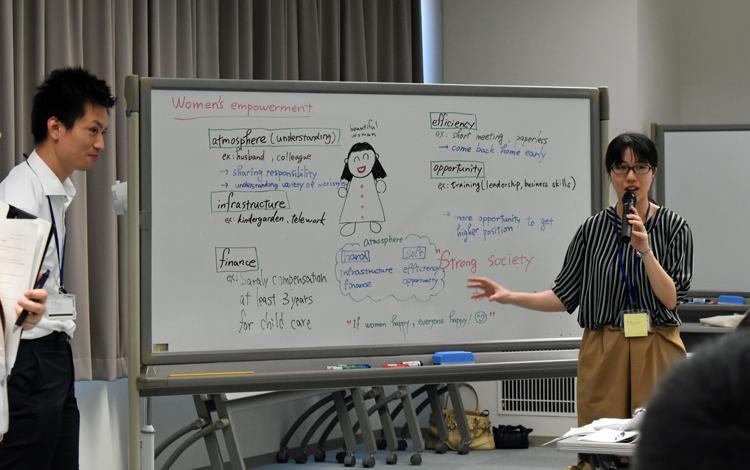 Women's empowerment
atmosphere (understanding)
ex: husband, colleague
→ sharing responsibility
→ understanding variety of workstyle
infrastructure
ex: kindergarden, telework
finance
ex: Salaly compensation
at least 3 years
for child care
beautiful
woman
atmosphere
hard
infrastructure
finance
soft
efficiency
opportunity
efficiency
ex: short meeting, paperless
→ come back home early
opportunity
ex: training (leadership, business skills)
→ more opportunity to get
higher position
"Strong society
"If women happy, everyone happy!"